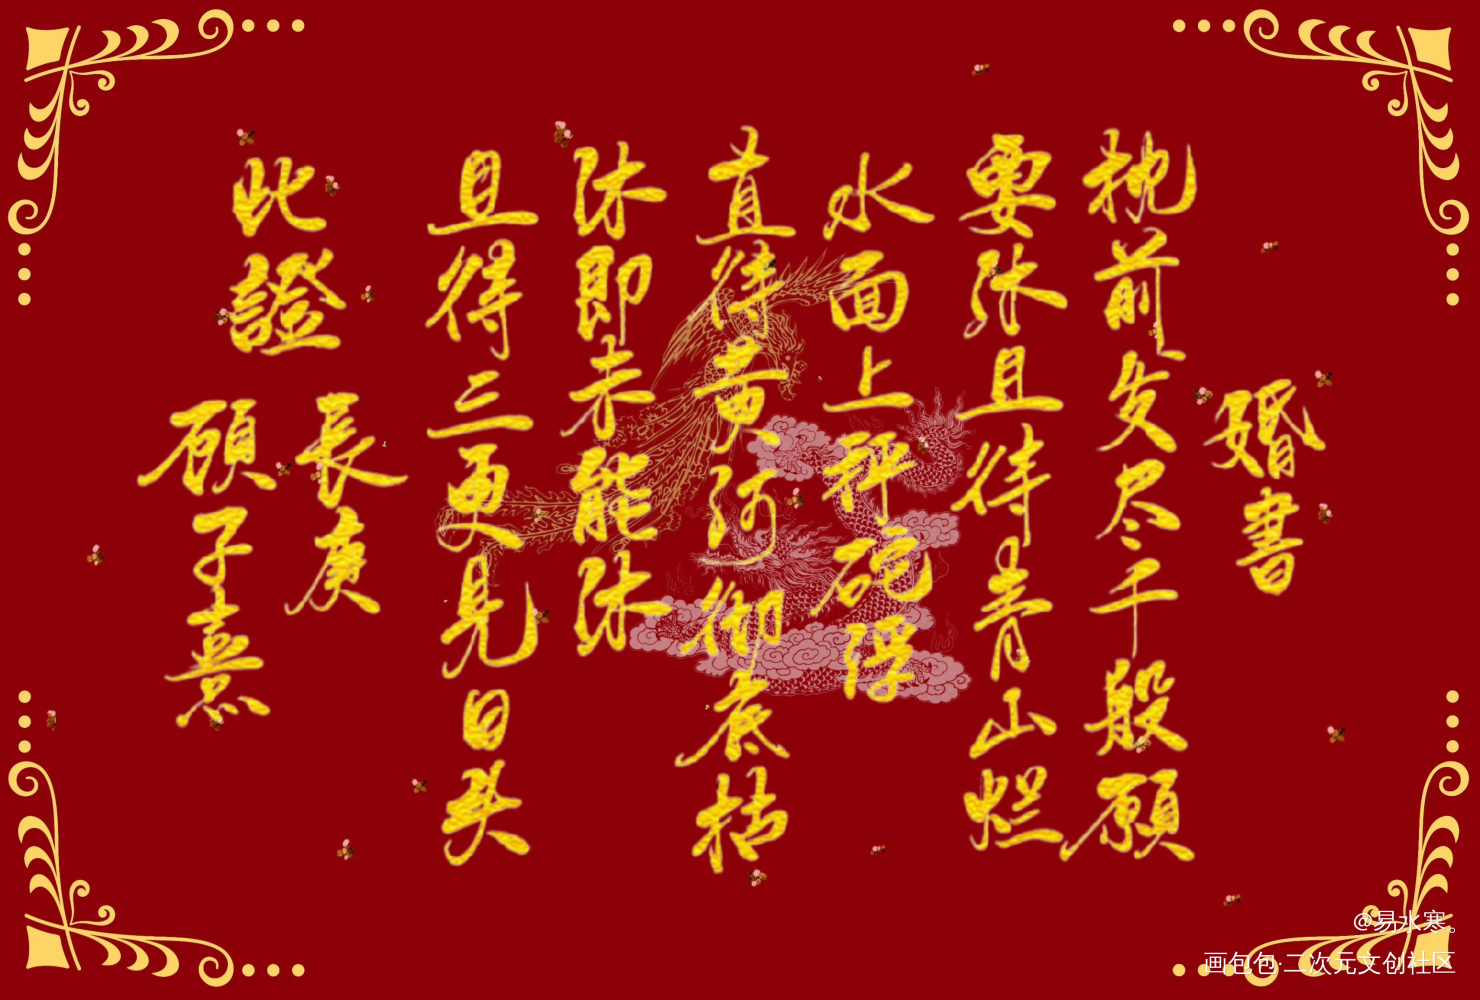 婚書
枕前发尽千般願
要休且待青山烂
水面上秤砣浮
直待黄河彻底枯
休即未能休
且得三更見日头
此證
長庚
顧子熹
@易水寒。
画包包·二次元文创社区